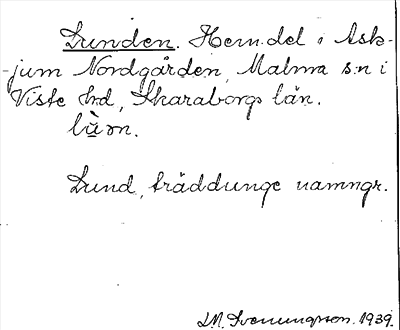 Lunden. Hem.del i Ask-
-jum Nordgården, Malma s:n i
Viste hd, Skaraborgs län.
lù̱ɷn.
Lund, träddunge namngr.
I.M. Svenungsson. 1939.